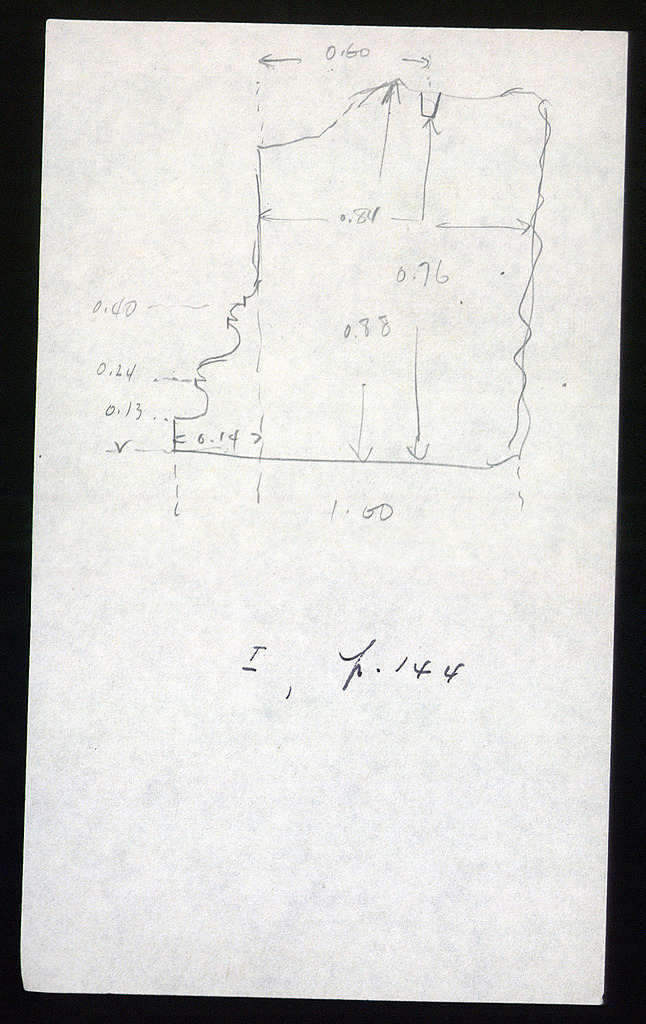 0.60
0.84
0.76
0.40
0.88
0.24
0.13
0.14
1.00
I, p. 144